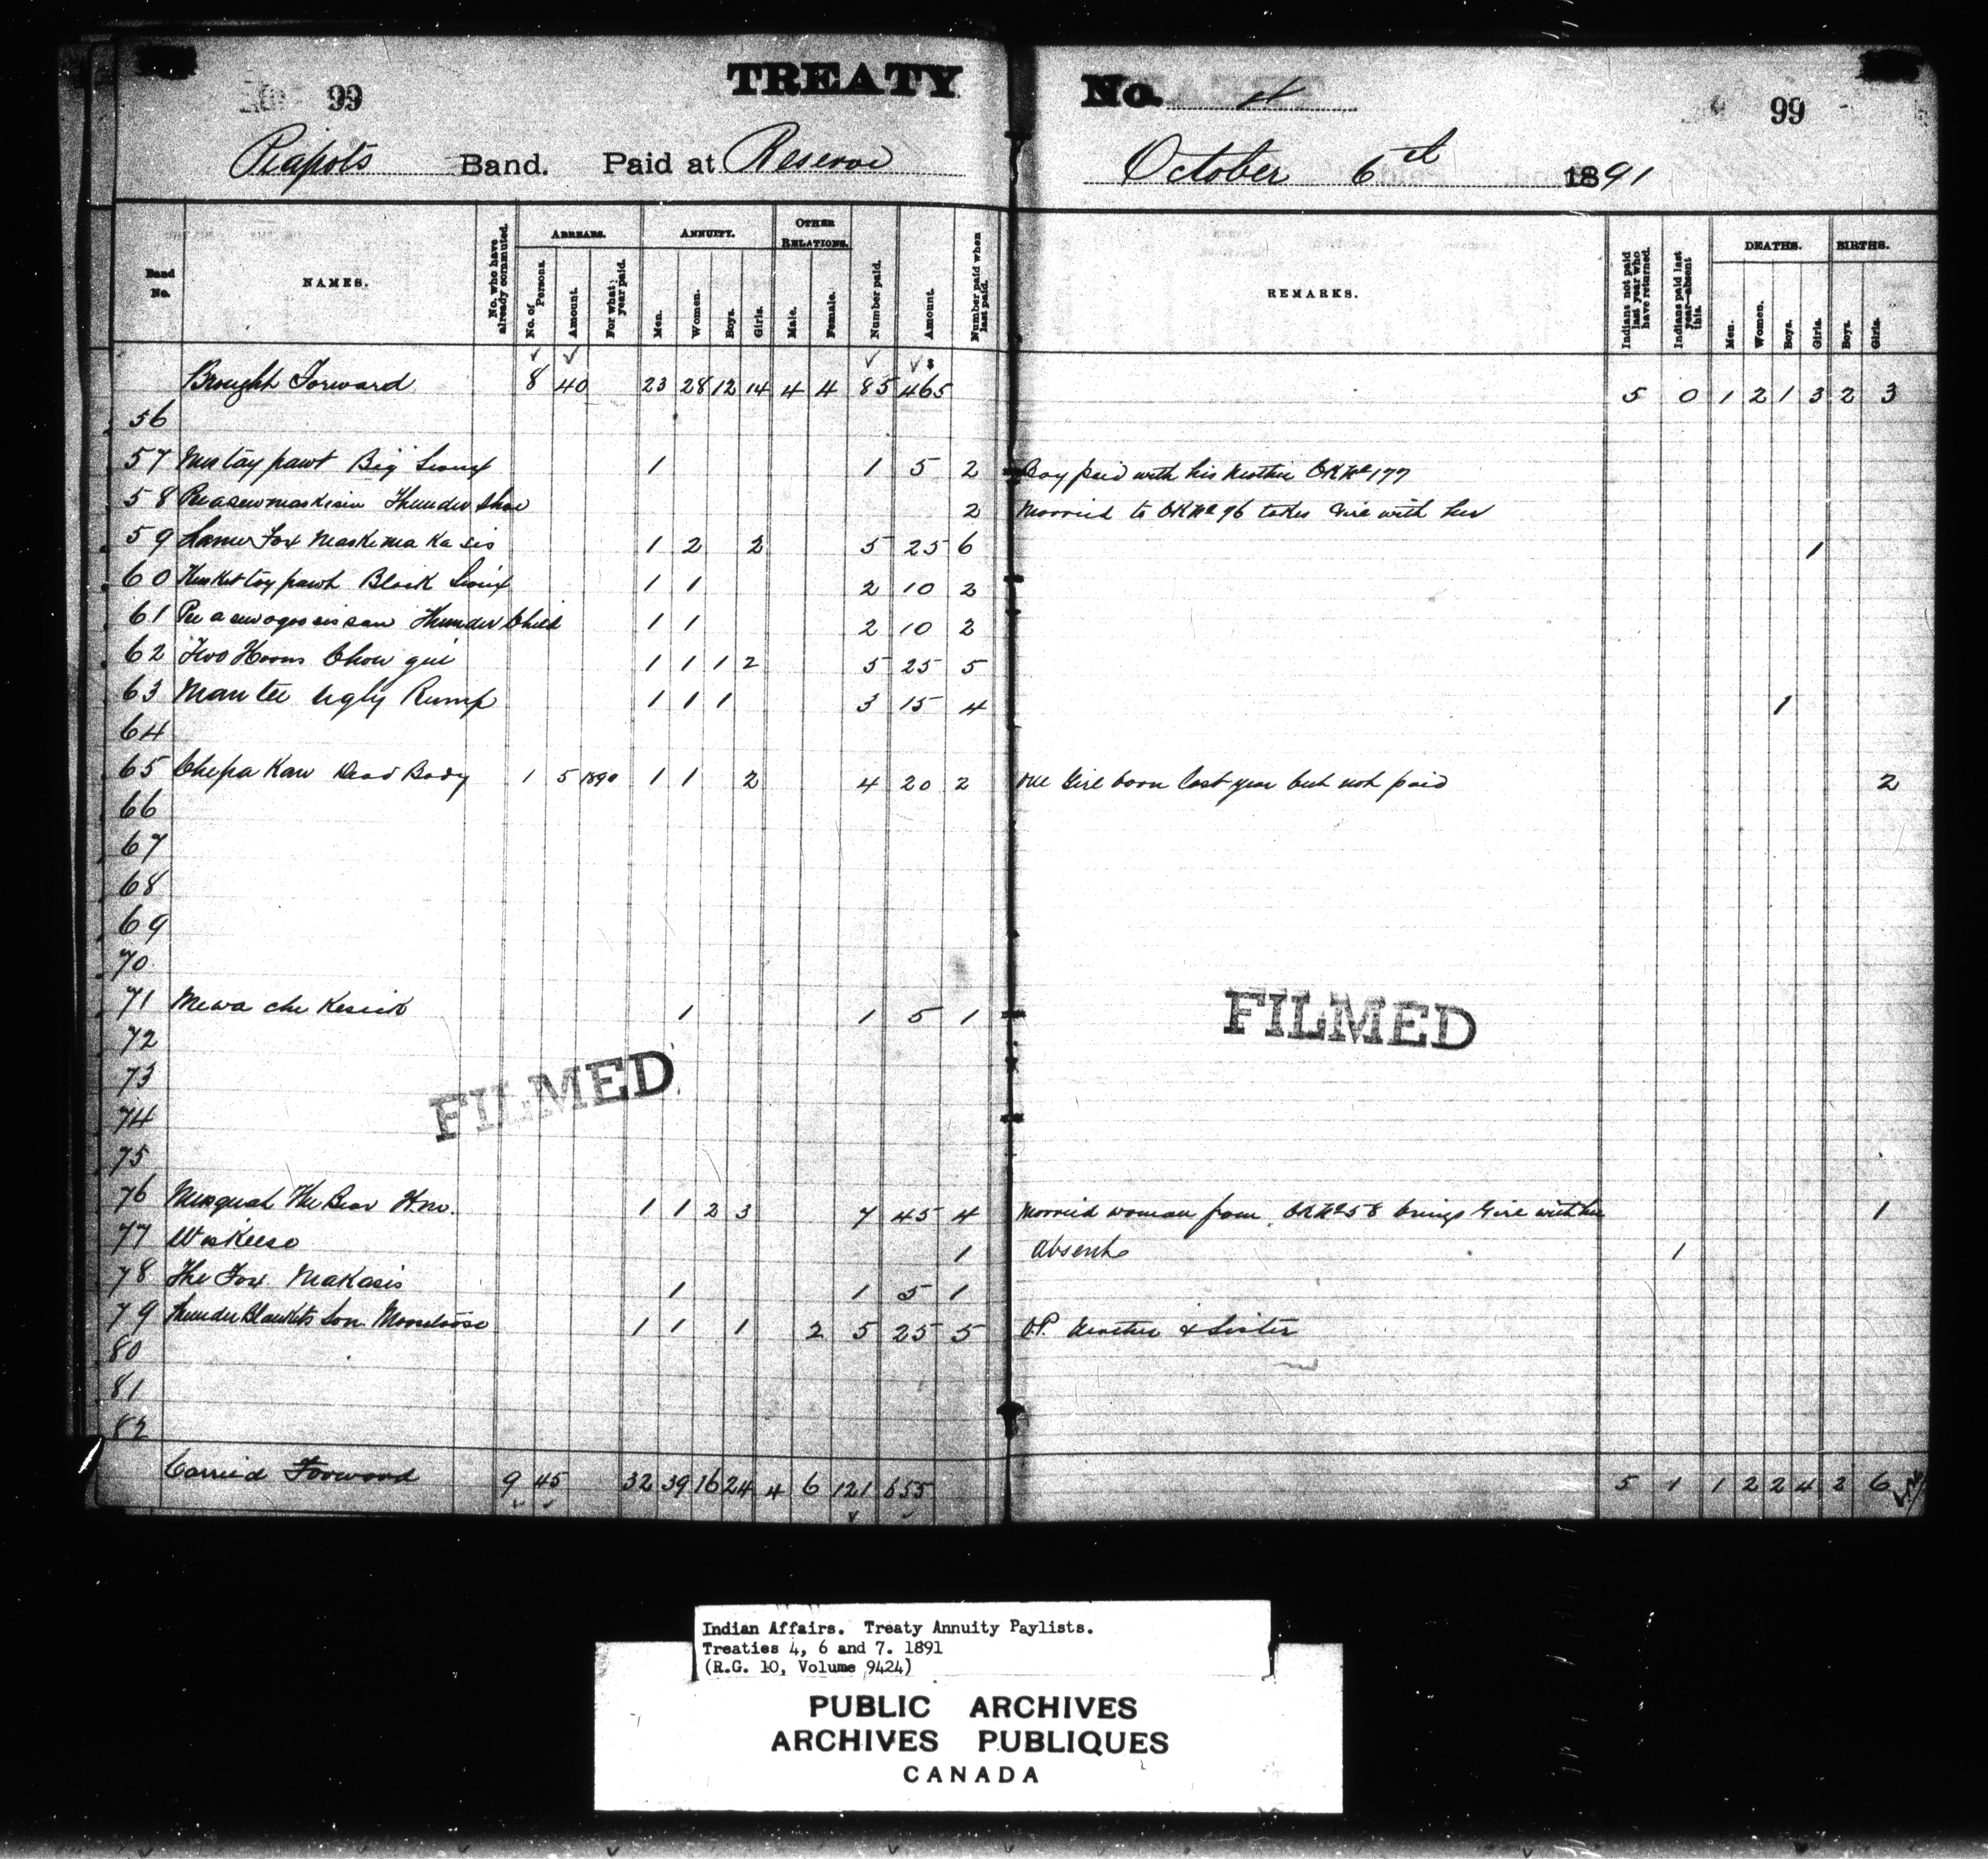 99 TREATY No. 4 99
Piapots Band. Paid at Reserve October 6th 1891
Band No. NAMES. No. who have already commuted. ARREARS. No. of Persons. Amount. For what year paid. ANNUITY. Men. Women. Boys. Girls. OTHER RELATIONS. Male. Female. Number paid. Amount. Number paid when last paid. REMARKS. Indians not paid last year who have returned. Indians paid last year—absent this. DEATHS. Men. Women. Boys. Girls. BIRTHS. Boys. Girls.
Brought Forward 8 40 23 28 12 14 4 4 85 465 5 0 1 2 1 3 2 3
56
57 Mistay pawt Big Sioux 1 1 5 2 Boy paid with his Mother OK No 177
58 Thunder Shoe 2 Married to OK No 76 takes Girl with her
59 Lame Fox Maskema Ka sis 1 2 2 5 25 6 1
60 Black Sioux 1 1 2 10 2
61 Thunder Child 1 1 2 10 2
62 Two Horns 1 1 1 2 5 25 5
63 Man tee Ugly Rump 1 1 1 3 15 4 1
64
65 Chepa Kaw Dead Body 1 5 1890 1 1 2 4 20 2 One Girl born last year but not paid 2
66
67
68
69
70
71 Mewa che Kesick 1 1 5 1
72
73
74
75
76 The Bear 1 1 2 3 7 45 4 Married woman from OK No 58 brings Girl with her 1
77 1 Absent 1
78 The Fox Makasis 1 1 5 1
79 Thunder Blankets Son 1 1 1 2 5 25 5 O.P. Mother & Sister
80
81
82
Carried Forward 9 45 32 39 16 24 4 6 121 655 5 1 1 2 2 4 2 6
FILMED
FILMED
Indian Affairs. Treaty Annuity Paylists.
Treaties 4, 6 and 7. 1891
(R.G. 10, Volume 9424)
PUBLIC ARCHIVES
ARCHIVES PUBLIQUES
CANADA